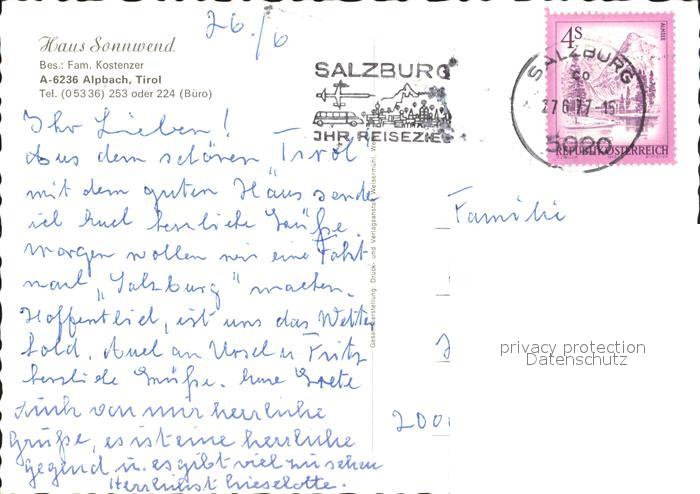 26./6
Haus Sonnwend
Bes.: Fam. Kostenzer
A-6236 Alpbach, Tirol
Tel. (0 53 36) 253 oder 224 (Büro)
SALZBURG
IHR REISEZIE
4S
ALMSEE
REPUBLIK ÖSTERREICH
SALZBURG
27 6 77-15
5020
Ihr Lieben!
Aus dem schönen Tirol
mit dem guten Haus sende
ich Euch herzliche Grüße.
Morgen wollen wir eine Fahrt
nach "Salzburg" machen.
Hoffentlich, ist uns das Wetter
hold. Auch an Ursel u Fritz
herzliche Grüße. Eure Grete
Auch von mir herzliche
Grüße, es ist eine herrliche
Gegend u. es gibt viel zu sehen
Herzlichst Lieselotte.
Gesamtherstellung: Druck- und Verlagsanstalt Welsermühl, We
Familie
200
privacy protection
Datenschutz